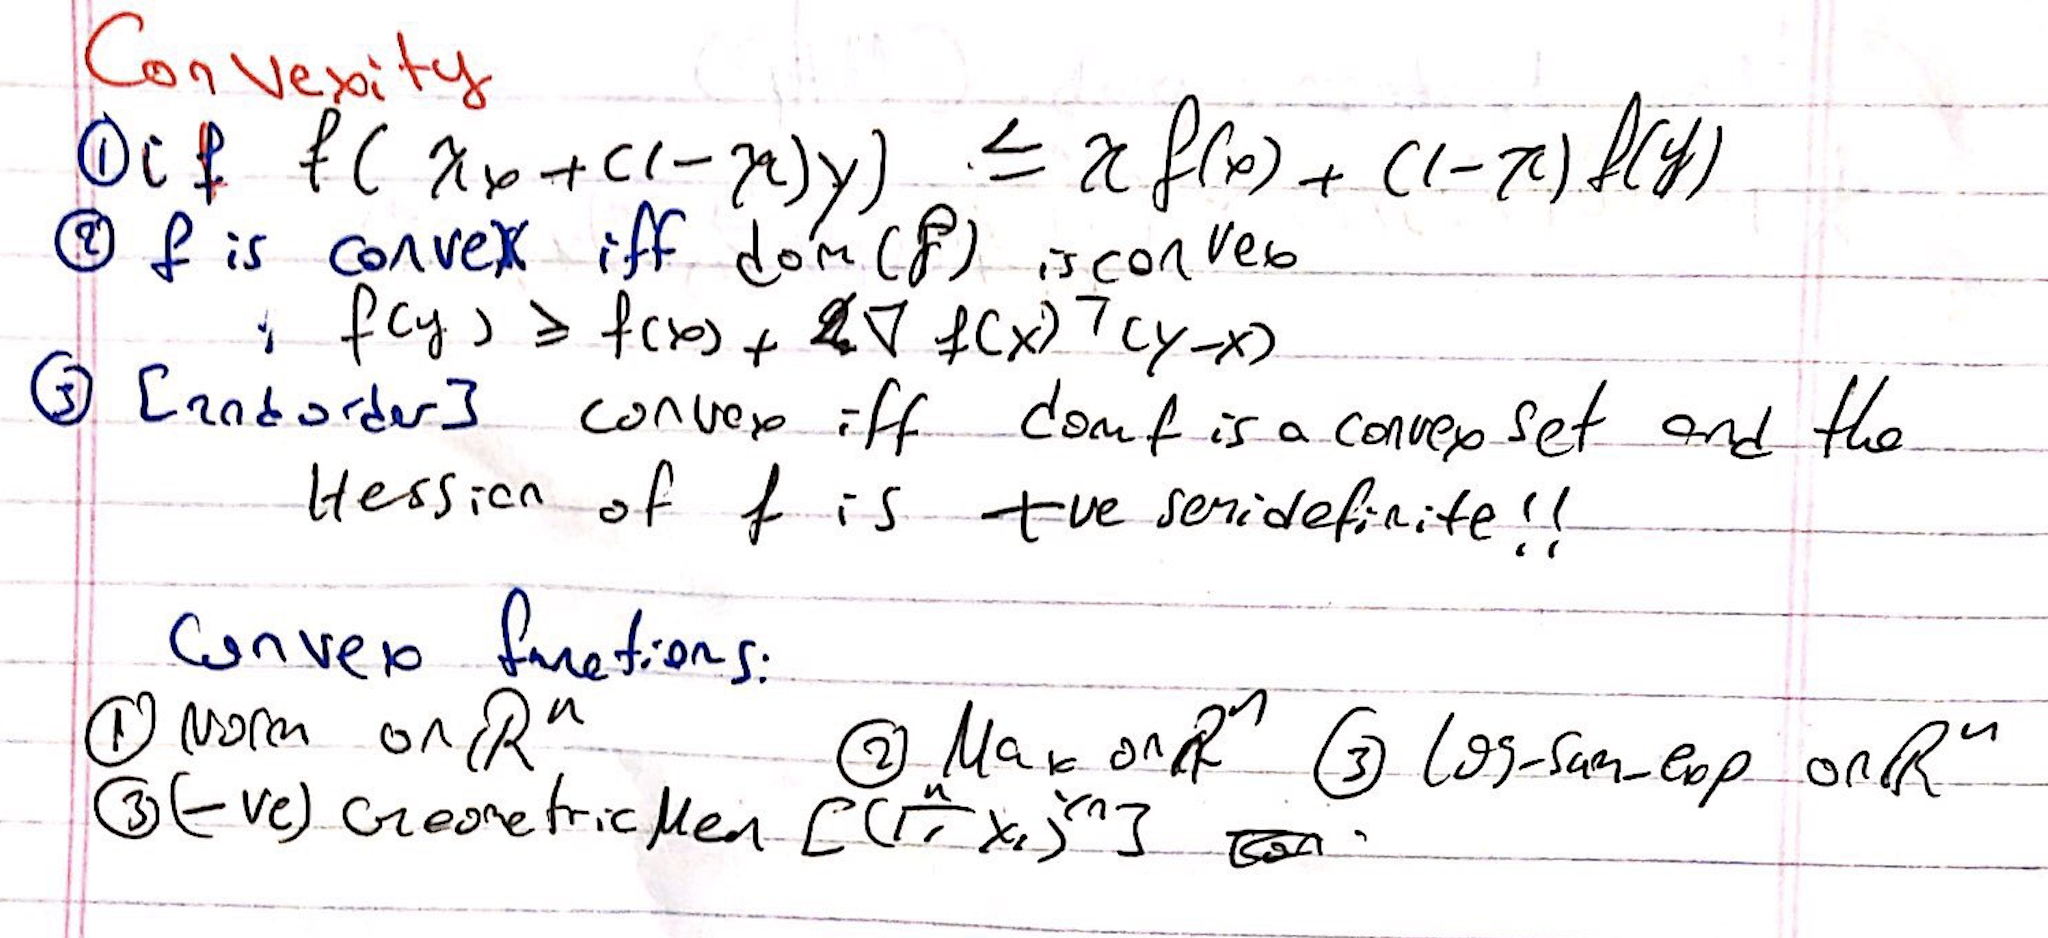 Convexity
① if f( λx + (1-λ)y) ≤ λ f(x) + (1-λ) f(y)
② f is convex iff dom(f) is convex
, f(y) ≥ f(x) + ∇ f(x)ᵀ(y-x)
③ [2nd order] convex iff domf is a convex set and the
Hessian of f is +ve semidefinite!!
Convex functions:
① Norm on ℝⁿ ② Max on ℝⁿ ③ Log-sum-exp on ℝⁿ
③ (-ve) Geometric Mean [(∏ⁿ xᵢ)^(1/n)]